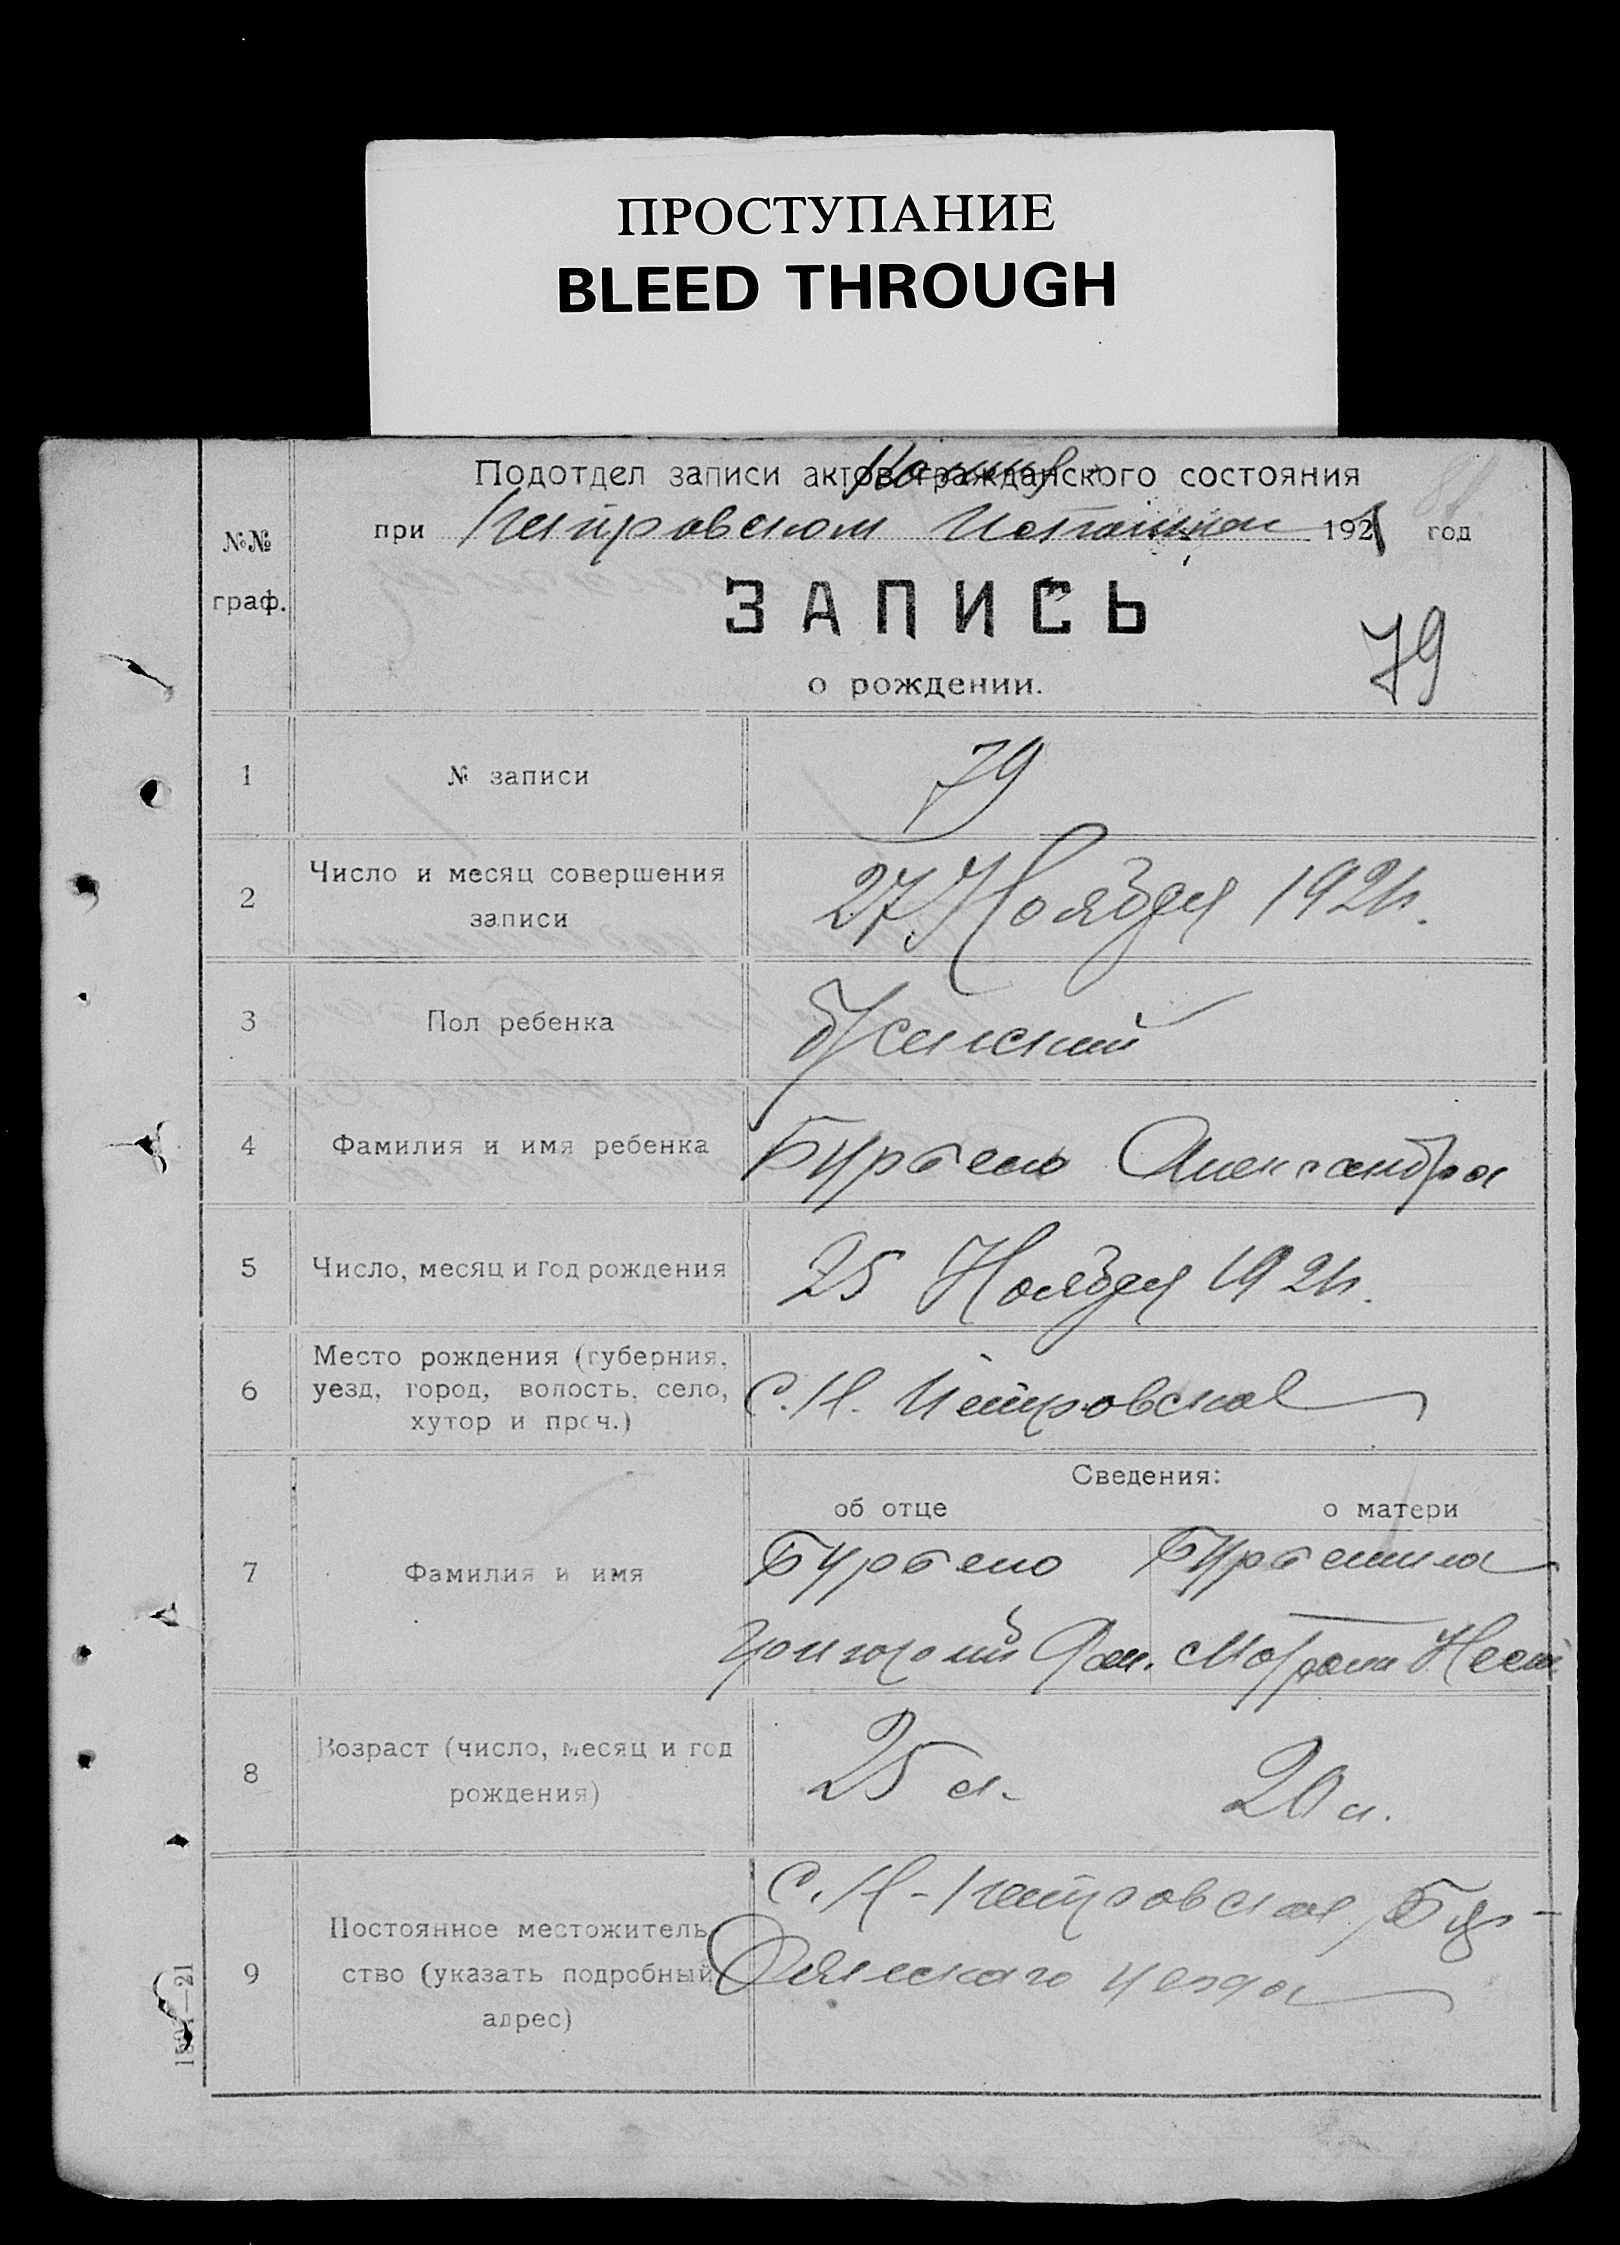 ПРОСТУПАНИЕ
BLEED THROUGH
Подотдел записи актов гражданского состояния
при Петровском 1921 год
№№
граф.
ЗАПИСЬ
о рождении.
79
1 № записи 79
2 Число и месяц совершения
записи
27 Ноября 1921г.
3 Пол ребенка Женский
4 Фамилия и имя ребенка Александра
5 Число, месяц и год рождения 25 Ноября 1921г.
6 Место рождения (губерния,
уезд, город, волость, село,
хутор и проч.)
С. Н. Петровское
Сведения:
об отце о матери
7 Фамилия и имя
Григорий
8 Возраст (число, месяц и год
рождения)
25 л. 20 л.
9 Постоянное местожитель
ство (указать подробный
адрес)
С. Н-Петровское, Бер-
дянскаго уезда